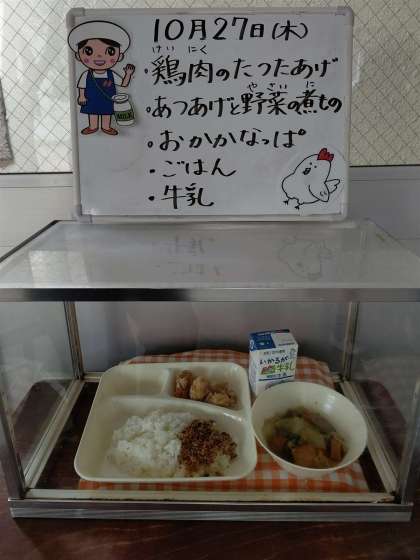 10月27日(木)
けい にく
・鶏肉のたつたあげ
やさい に
・あつあげと野菜の煮もの
・おかかなっぱ
・ごはん
・牛乳
MILK
いかるが
牛乳